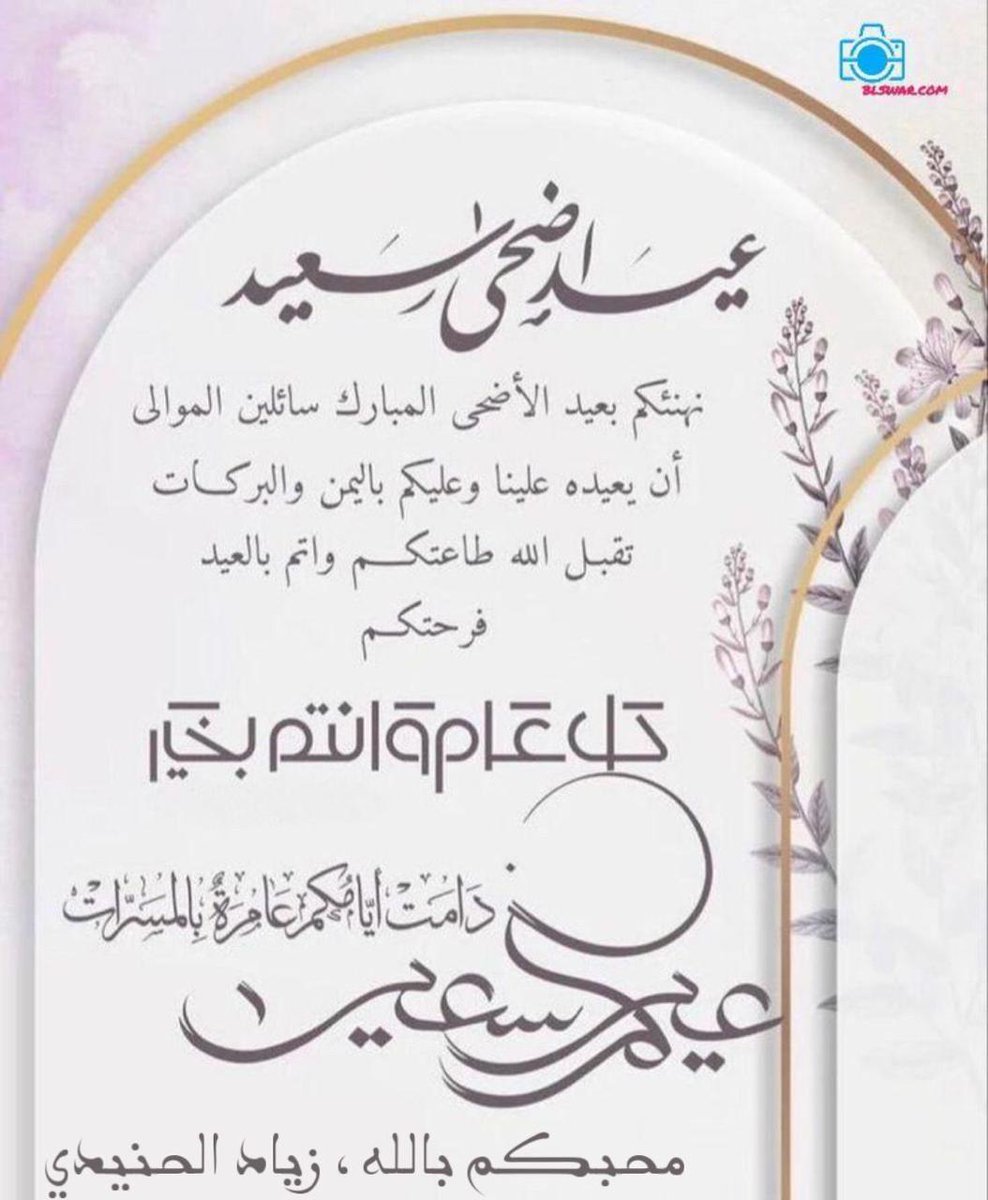 BLSWAR.COM
عيد اضحى سعيد
نهنئكم بعيد الأضحى المبارك سائلين الموالى
أن يعيده علينا وعليكم باليمن والبركات
تقبل الله طاعتكم واتم بالعيد
فرحتكم
كل عام وانتم بخير
دَامَتْ أيّامُكم عَامِرَةٌ بِالمسَرّاتْ
عيدكم سعيد
محبكم بالله ، زياد الحنيدي